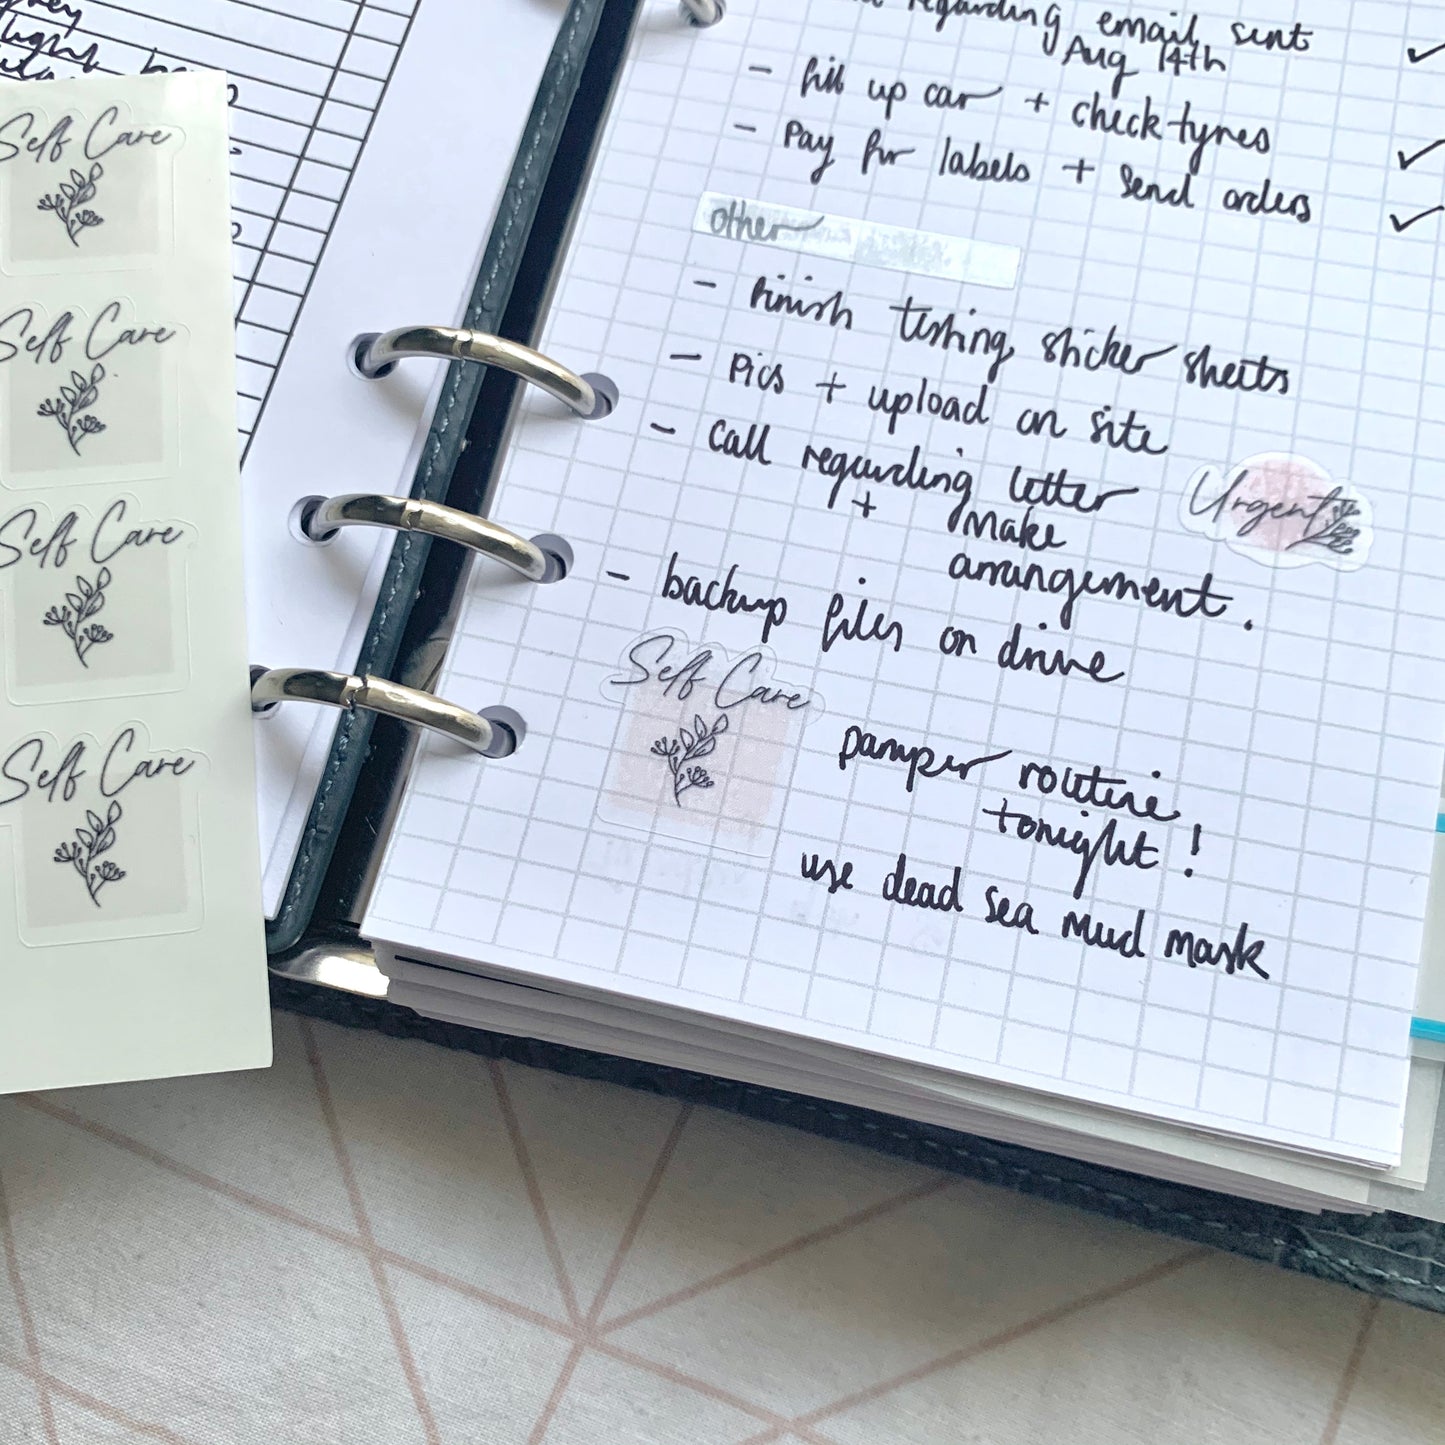 Self Care
Self Care
Self Care
Self Care
regarding email sent
Aug 14th
- fill up car + check tyres ✓
- Pay for labels + send orders ✓
other
- Finish testing sticker sheets
- Pics + upload on site
- Call regarding letter
+ Make
arrangement.
Urgent
- backup files on drive
Self Care
pamper routine
tonight!
use dead sea mud mask